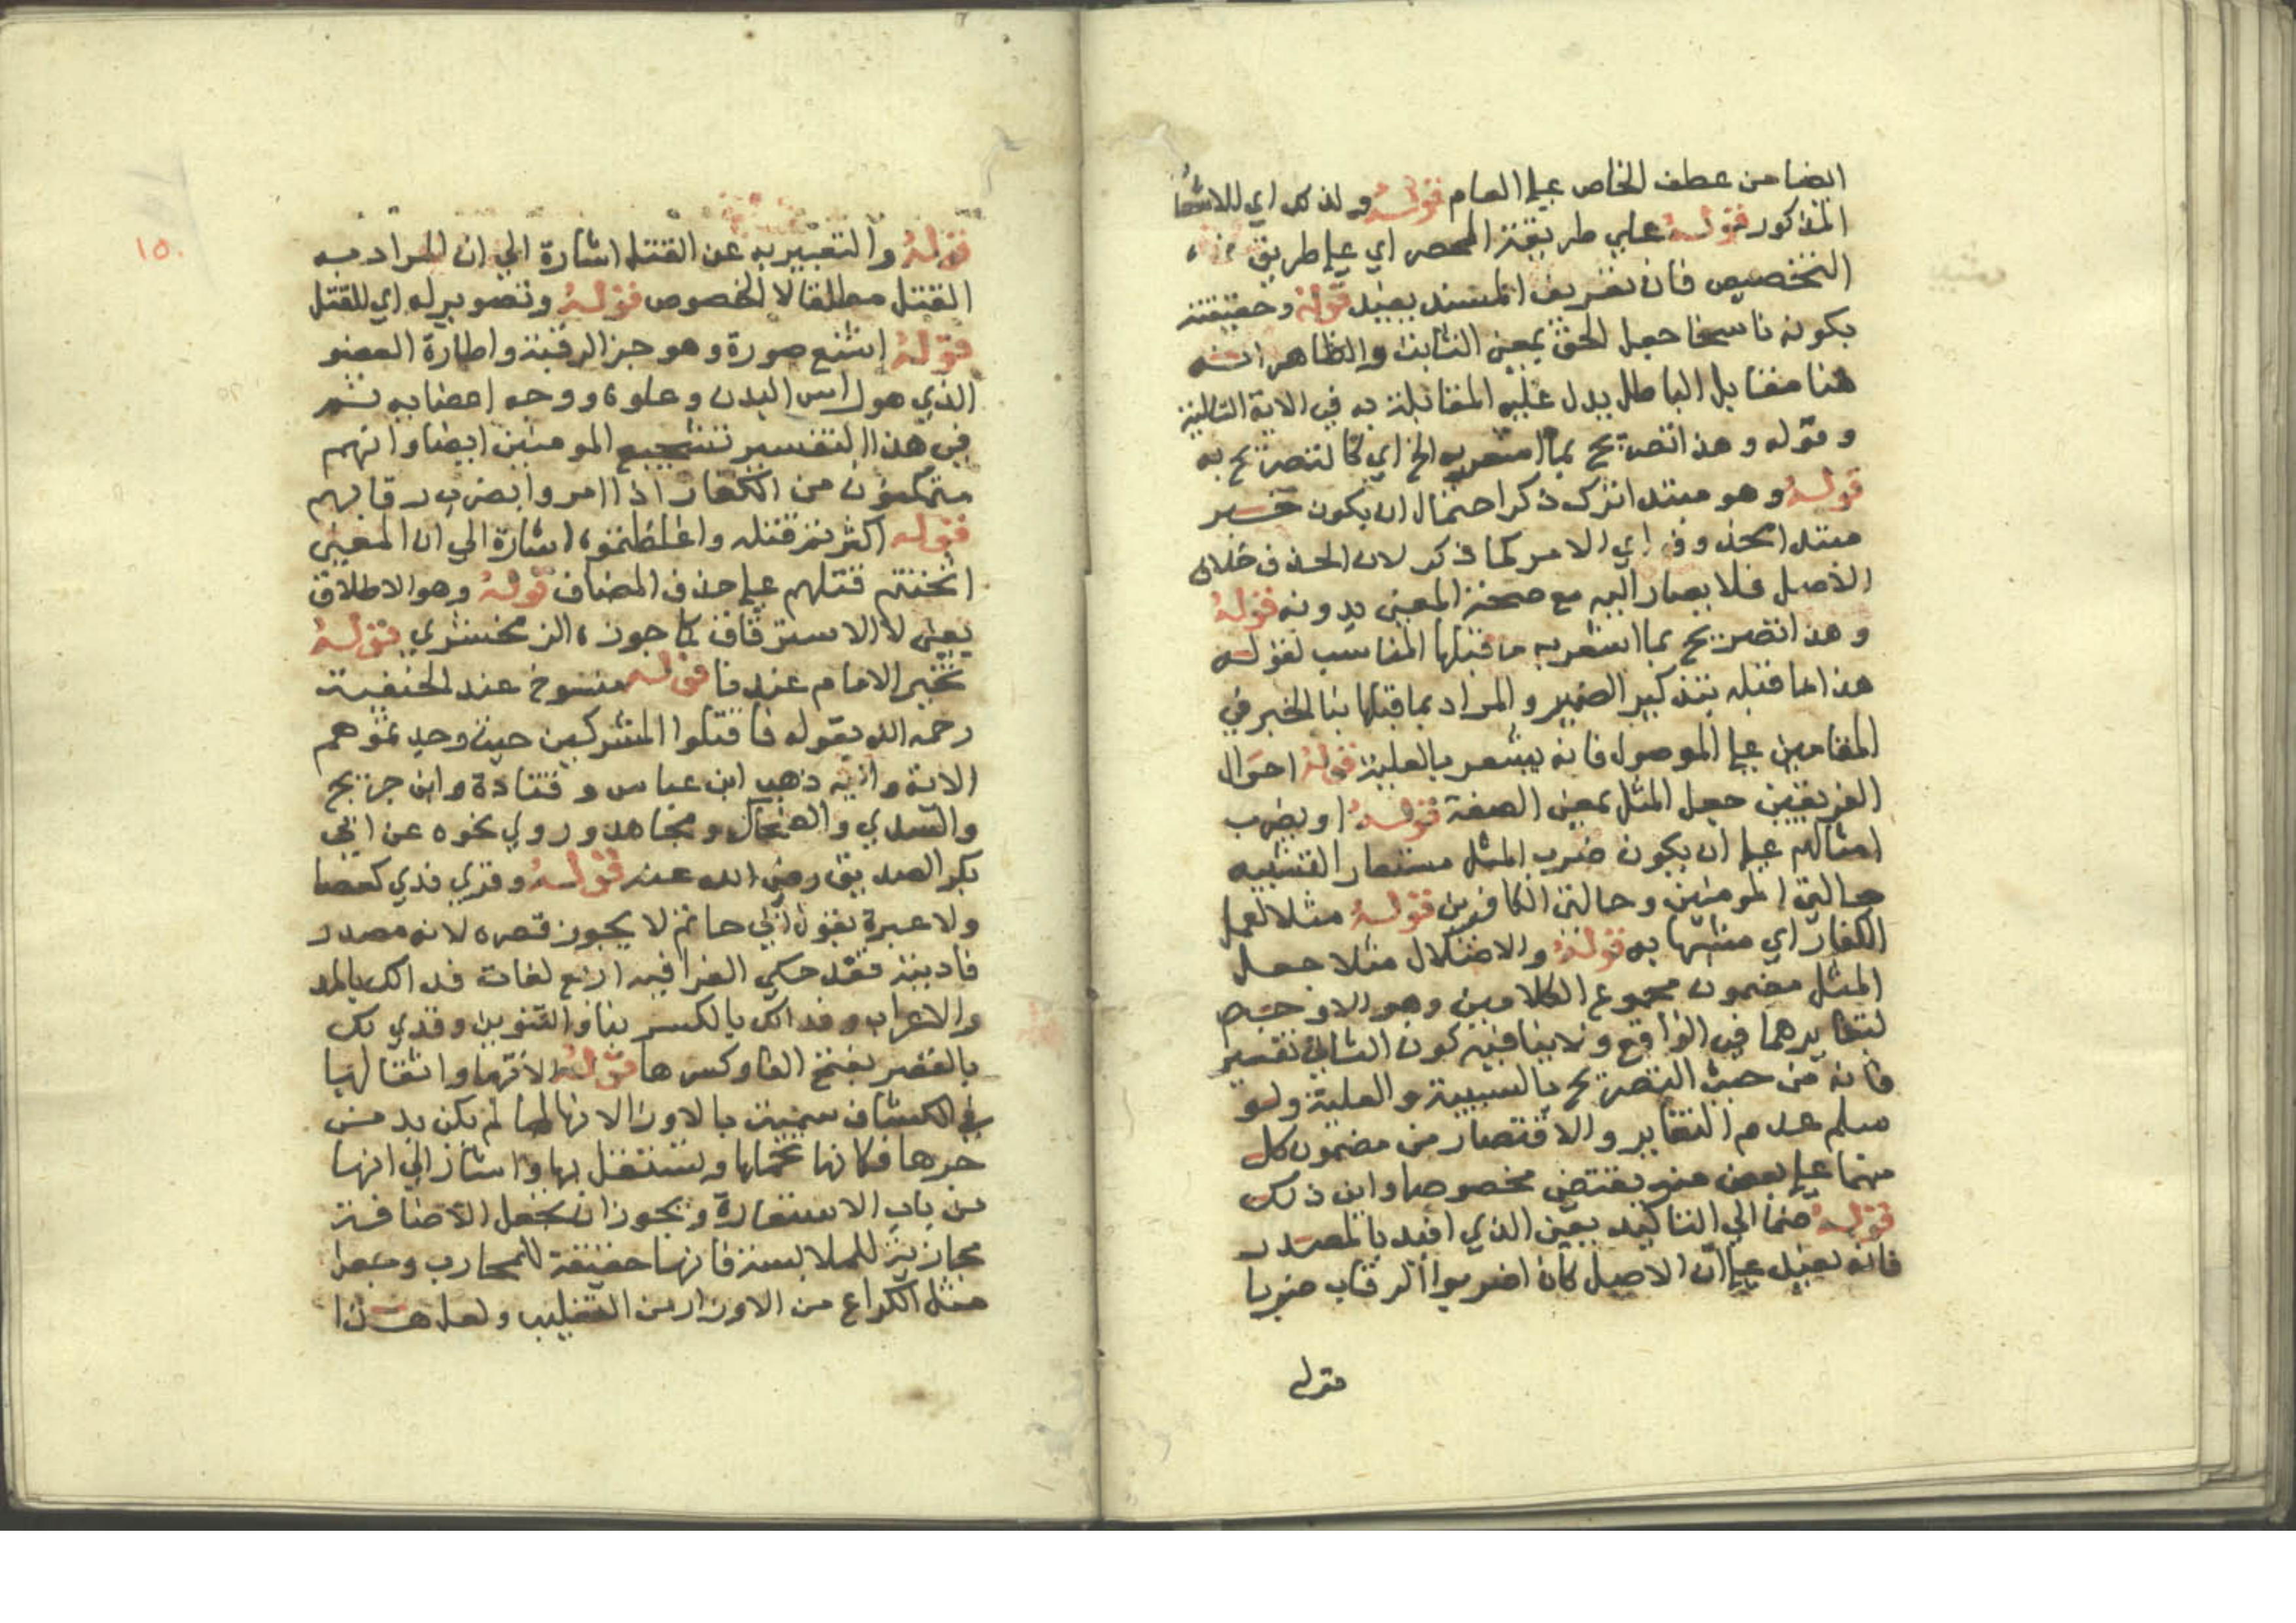 ايضا من عطف الخاص علي العام قوله ولذلك اي للاشعار
المذكور قوله علي طريقة الحصر اي علي طريق
التخصيص فان تعريف المسند يفيد قوله وحقيقته
بكونه ناسخا جعل الحق بمعني الثابت والظاهر انه
هنا مقابل الباطل يدل عليه المقابلة به في الاية التالية
وقوله وهذا تصريح بما اشعر به الخ اي كالتصريح به
قوله وهو مبتدا ترك ذكر احتمال ان يكون خبر
مبتدا محذوف اي الامر كما ذكر لان الحذف خلاف
الاصل فلا يصار اليه مع صحة المعني بدونه قوله
وهذا تصريح بما اشعر به ما قبلها المناسب لقوله
هذا ما قبله بتذكير الضمير والمراد بما قبلها بنا الخبر في
المقامين علي الموصول فانه يشعر بالعلية قوله احوال
الفريقين جعل المثل بمعني الصفة قوله او يضرب
امثالهم علي ان يكون ضرب المثل مستعار التشبيه
حالتي المومنين وحالتي الكافرين قوله مثلا لعمل
الكفار اي مشبها به قوله والاضلال مثلا جعل
المثل مضمون مجموع الكلامين وهو الاوجه
لتغايرهما في الواقع ولا ينافيه كون الثاني تفسير
فانه من حيث التصريح بالسببية والعلية ولو
سلم عدم التغاير والاقتصار من مضمون كل
منهما علي بعض منه يقتضي مخصوصا واين ذلك
قوله ضما الي التاكيد يعني الذي افيد بالمصدر
فانه بعيد علي ان الاصل كان اضربوا الرقاب ضربا
قوله
١٥٠
قوله والتعبير به عن القتل اشارة الي ان المراد به
القتل مطلقا لا الخصوص قوله وتصوير له اي للقتل
قوله اشنع صورة وهو جز الرقبة واطارة العضو
الذي هو راس البدن وعلوه ووجه اعضابه ثم
في هذا التفسير تشجيع المومنين ايضا وانهم
متمكنون من الكفار اذا امروا بضرب رقابهم
قوله اكثرتم قتله واغلظتموه اشارة الي ان المعني
اثخنتم قتلهم علي حذف المضاف قوله وهو الاطلاق
يعني لا الاسترقاق كما جوزه الزمخشري قوله
تخير الامام عندنا قوله منسوخ عند الحنفية
رحمه الله بقوله فاقتلوا المشركين حيث وجدتموهم
الاية واليه ذهب ابن عباس وقتادة وابن جريج
والسدي والضحاك ومجاهد وروي نحوه عن ابي
بكر الصديق رضي الله عنه قوله وقري فدي كعصا
ولا عبرة بقول ابي حاتم لا يجوز قصره لانه مصدر
فاديته فقد حكي الفرا فيه اربع لغات فدا لك بالمد
والاعراب وفدا لك بالكسر بنا والتنوين وفدي لك
بالقصر بفتح الفا وكسرها قوله الاتها واثقالها
في الكشاف سميت بالاوزار لانها لما لم يكن بد من
جرها فكانها تحملها وتستقل بها واشار الي انها
من باب الاستعارة ويجوز ان يجعل الاضافة
مجازية للملابسة فانها حقيقة للمحارب وجعل
مثل الكراع من الاوزار من التغليب ولعل هذا